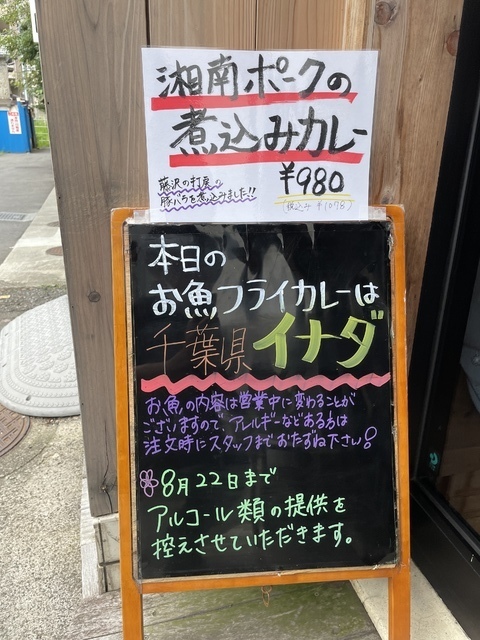 湘南ポークの
煮込みカレー
¥980
(税込み¥1078)
藤沢の打戻の
豚バラを煮込みました!!
本日の
お魚フライカレーは
千葉県イナダ
お魚の内容は営業中に変わることが
ございますので、アレルギーなどある方は
注文時にスタッフまでおたずね下さい!
8月22日まで
アルコール類の提供を
控えさせていただきます。